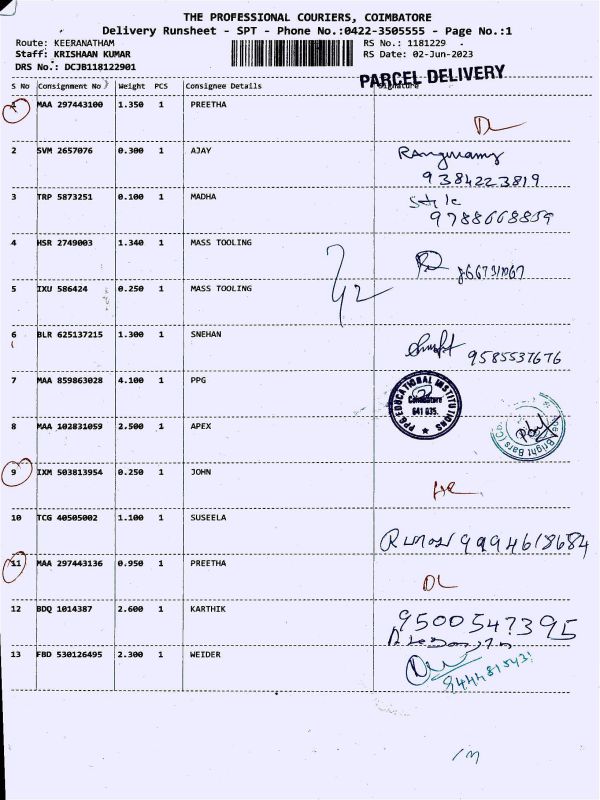 THE PROFESSIONAL COURIERS, COIMBATORE
Delivery Runsheet - SPT - Phone No.:0422-3505555 - Page No.:1
Route: KEERANATHAM RS No.: 1181229
Staff: KRISHAAN KUMAR RS Date: 02-Jun-2023
DRS No.: DCJB118122901
PARCEL DELIVERY
S No Consignment No Weight PCS Consignee Details Signature
1 MAA 297443100 1.350 1 PREETHA DL
2 SVM 2657076 0.300 1 AJAY
9384223819
3 TRP 5873251 0.100 1 MADHA
9788668859
4 HSR 2749003 1.340 1 MASS TOOLING
5 IXU 586424 0.250 1 MASS TOOLING
6 BLR 625137215 1.300 1 SNEHAN 9585537676
7 MAA 859863028 4.100 1 PPG
PPG EDUCATIONAL INSTITUTIONS
Coimbatore
641 035.
8 MAA 102831059 2.500 1 APEX
Bright Bars
9 IXM 503813954 0.250 1 JOHN
10 TCG 40505002 1.100 1 SUSEELA 9994618684
11 MAA 297443136 0.950 1 PREETHA DL
12 BDQ 1014387 2.600 1 KARTHIK 9500547395
13 FBD 530126495 2.300 1 WEIDER